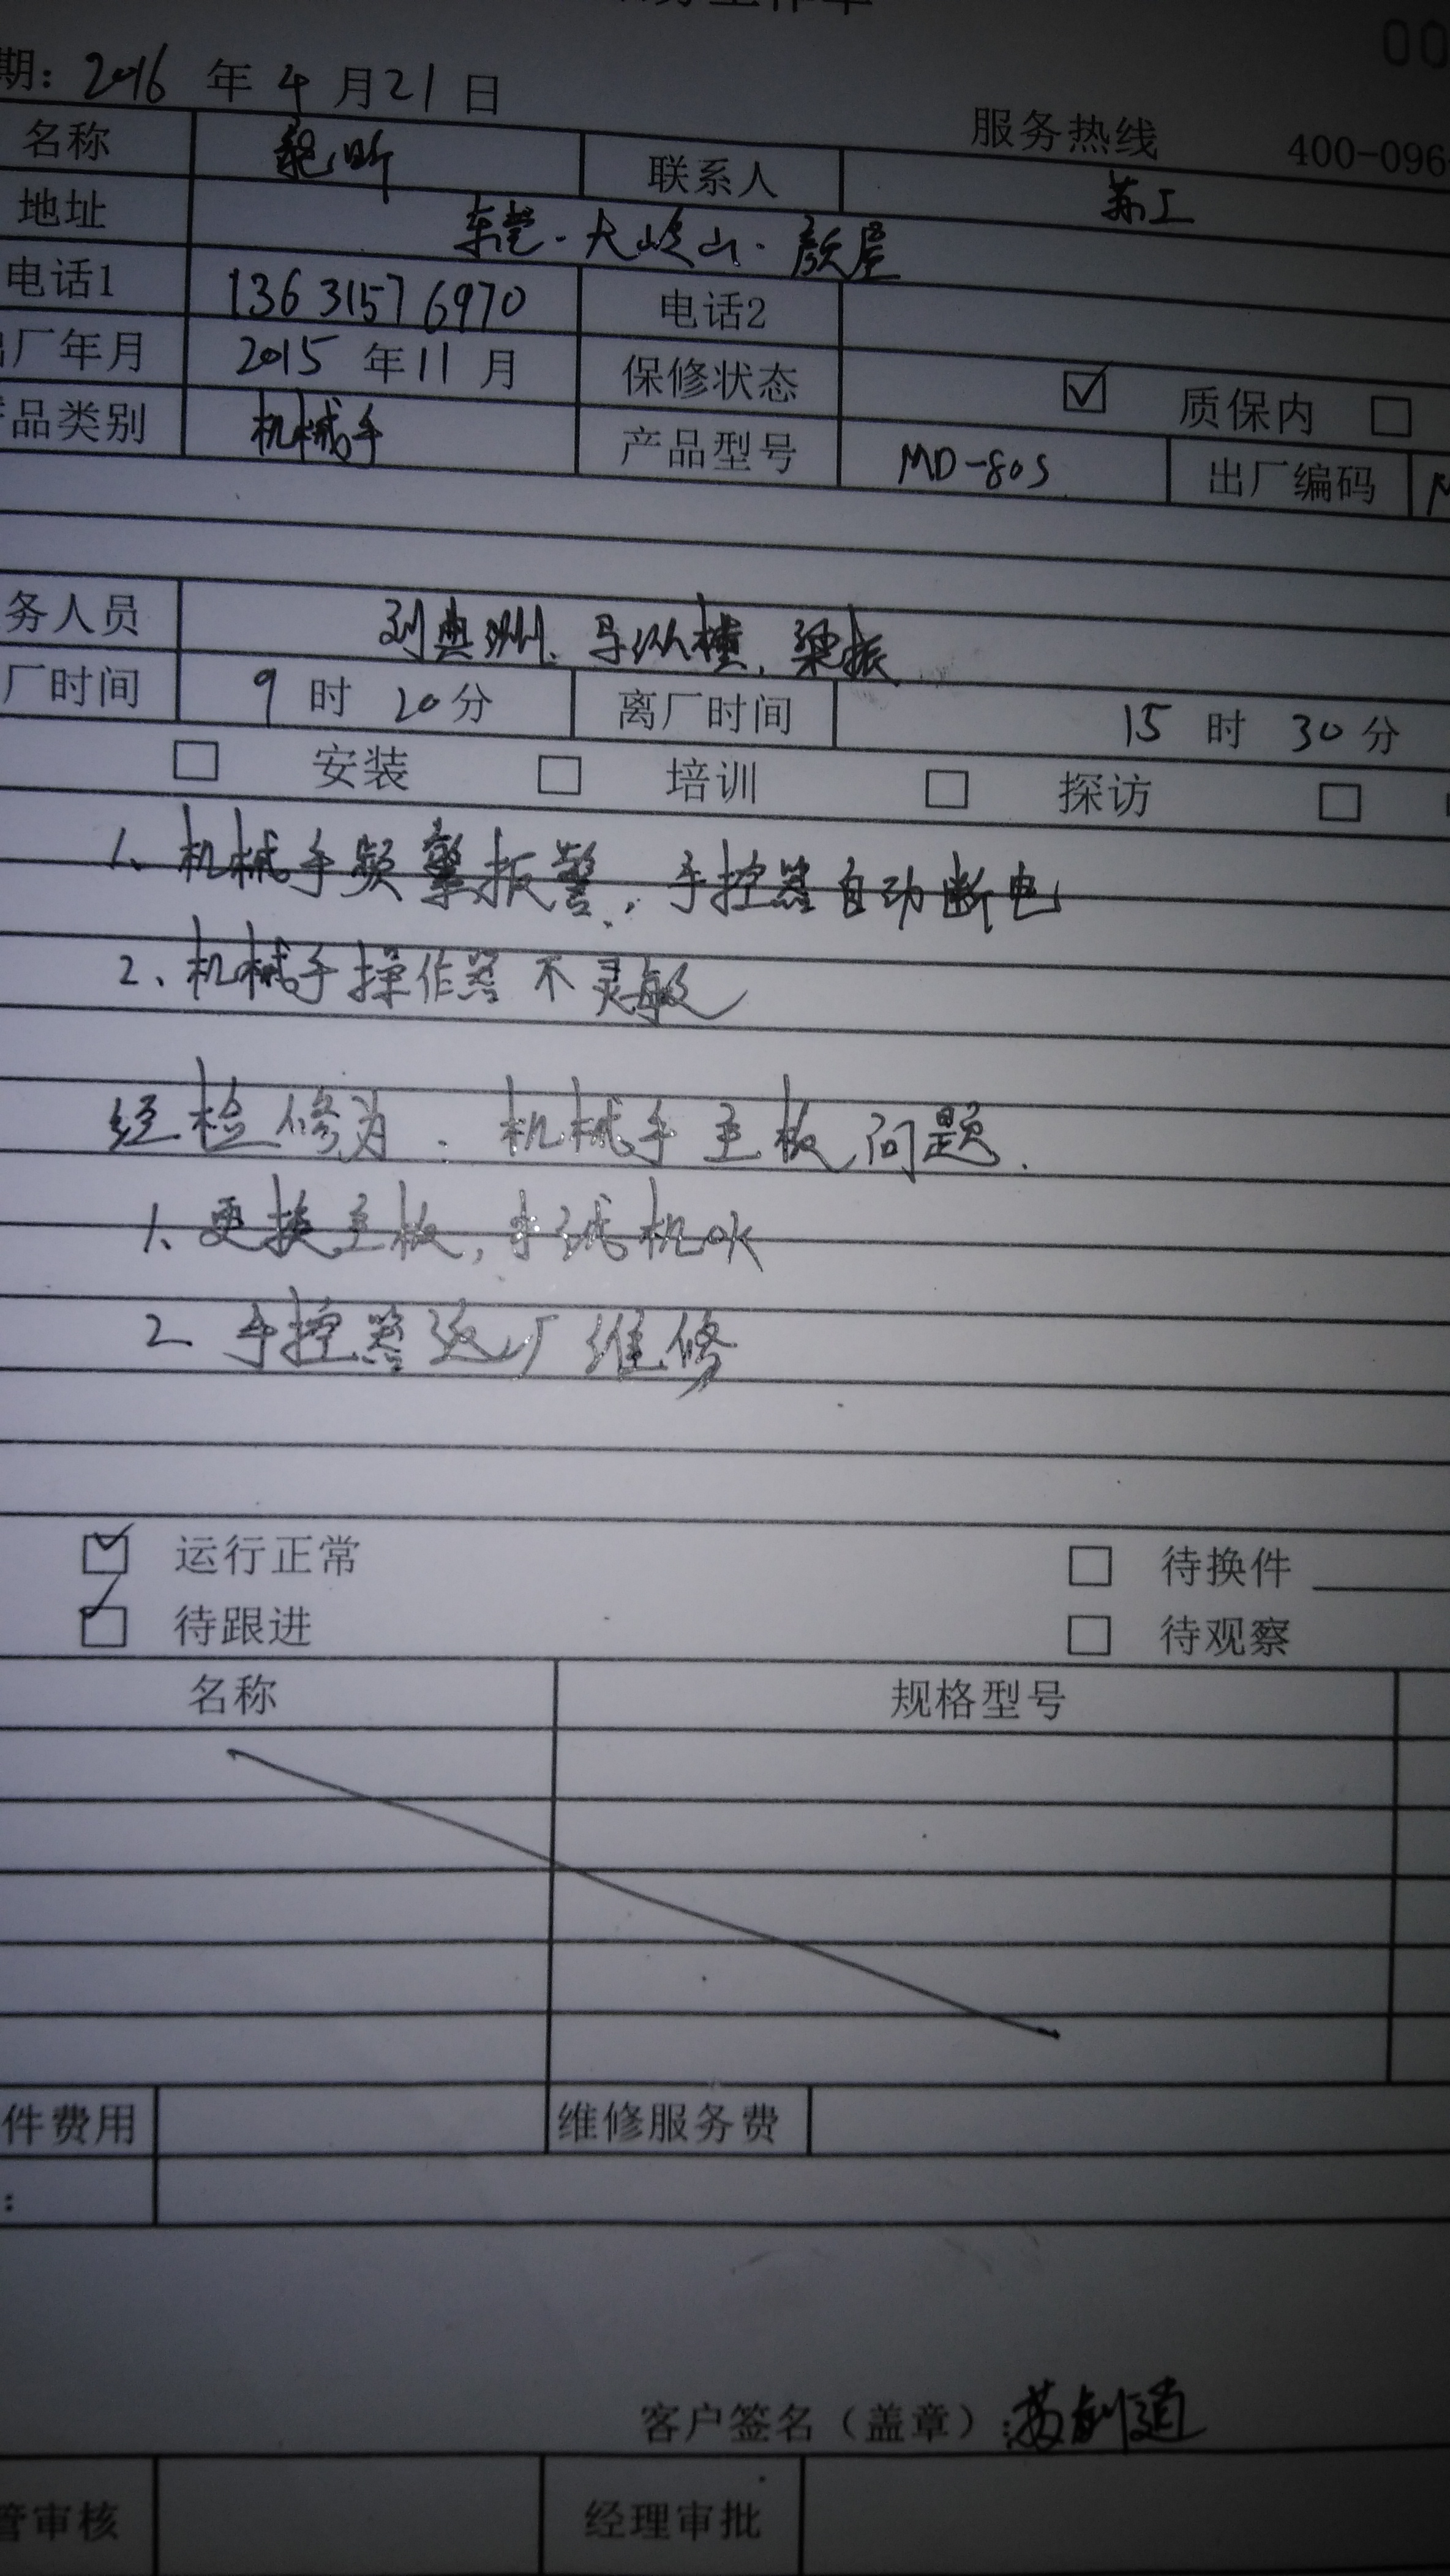 00
期：2016 年 4 月 21 日
服务热线 400-096
名称 联系人 苏工
地址 东莞·大岭山·颜屋
电话1 13631576970 电话2
厂年月 2015 年 11 月 保修状态 ☑ 质保内 □
品类别 机械手 产品型号 MD-80S 出厂编码 M
务人员 刘典洲、马纵横、梁振
厂时间 9 时 20 分 离厂时间 15 时 30 分
□ 安装 □ 培训 □ 探访 □
1、机械手频繁报警，手控器自动断电
2、机械手操作器不灵敏
经检修为：机械手主板问题.
1、更换主板，手试机OK
2 手控器返厂维修
☑ 运行正常 □ 待换件
☑ 待跟进 □ 待观察
名称 规格型号
件费用 维修服务费
：
客户签名（盖章）：
管审核 经理审批